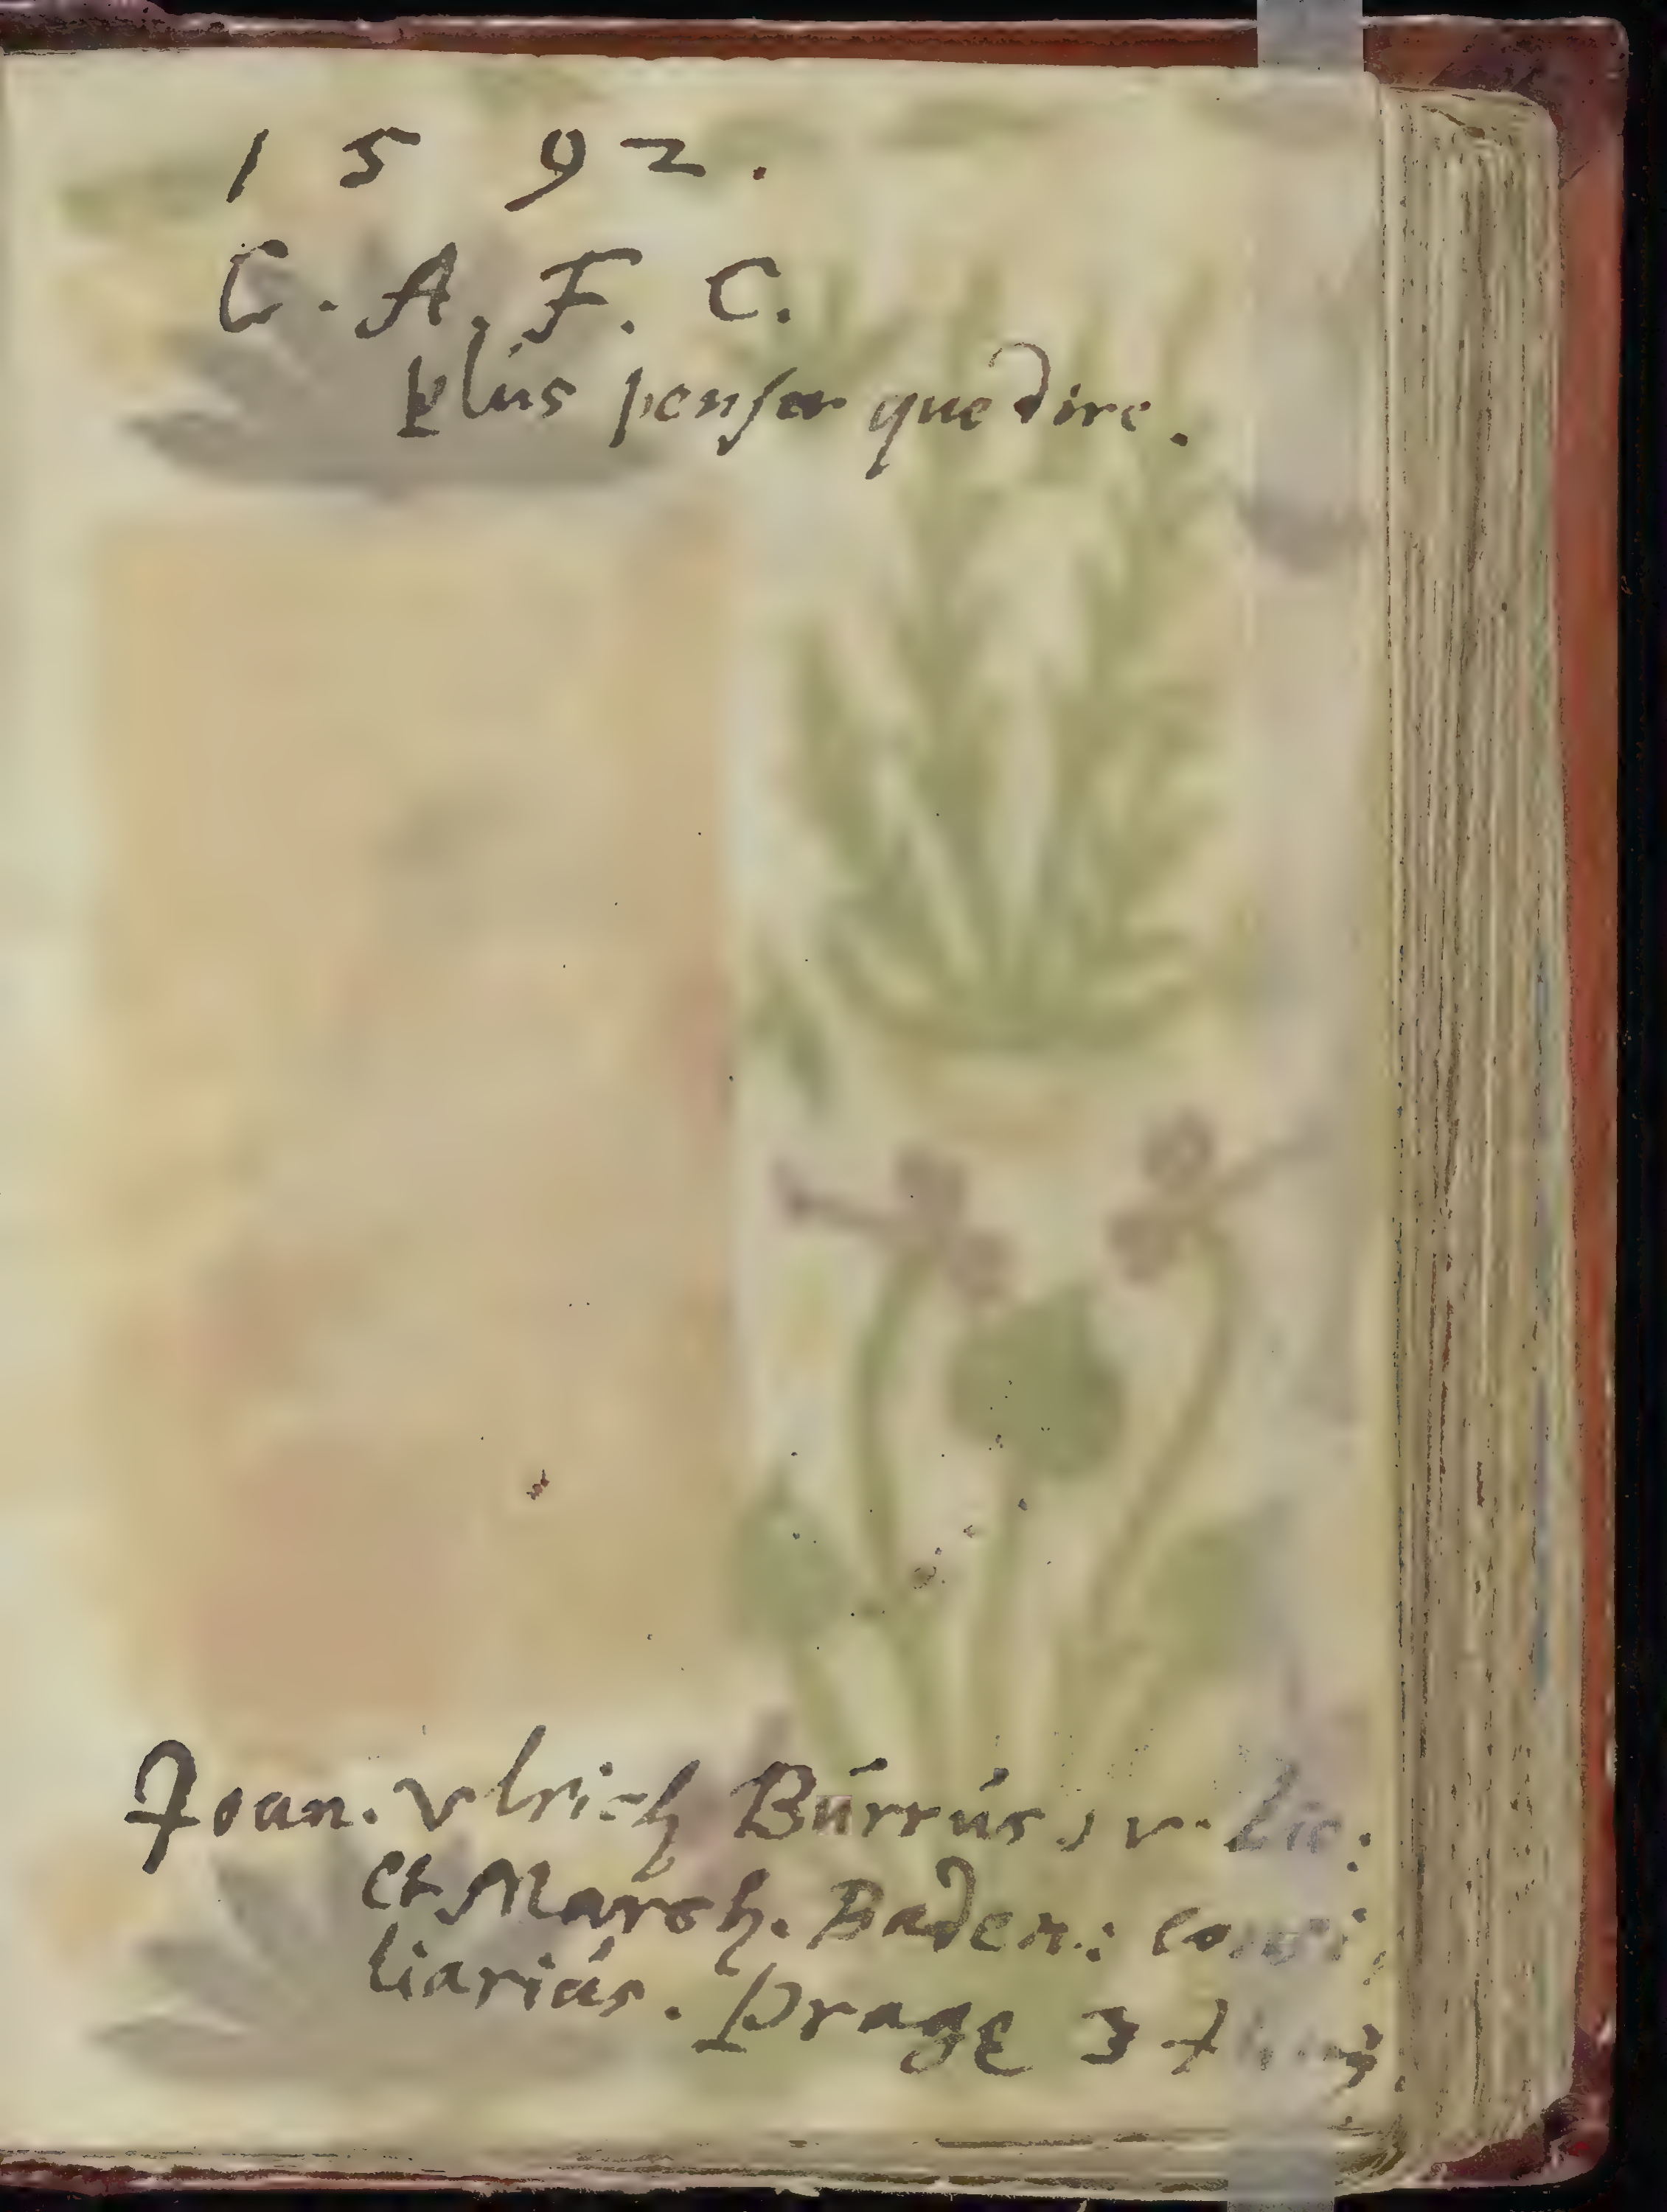 1592.
C. A. F. C.
Plus penser que dire.
Joan. Vlrich Burrus J v. Lic:
et March. Baden.: consi,
liarius. Prage 3